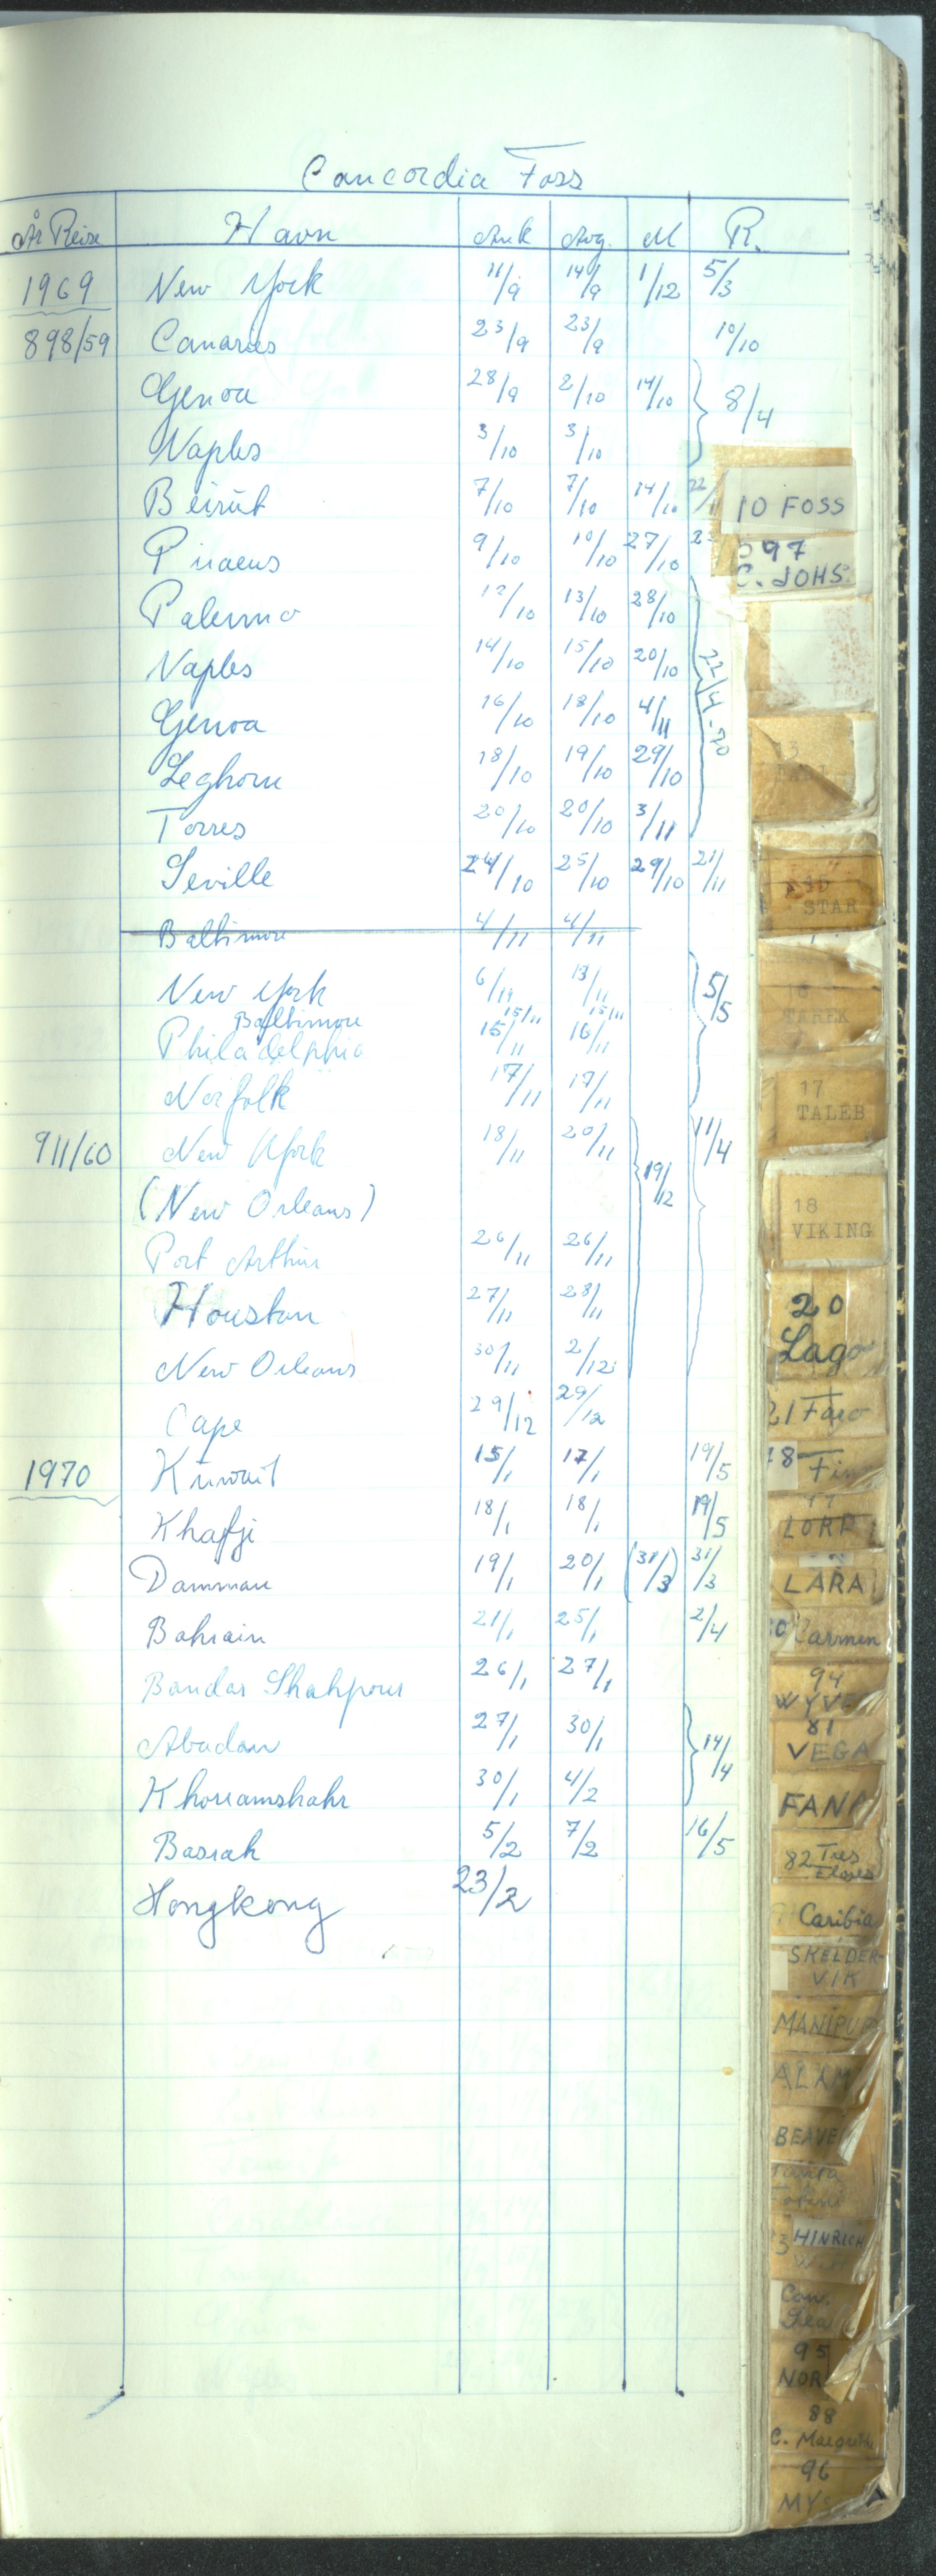 Concordia Foss
År Reise Havn Ank Avg. M R.
1969 New York 11/9 14/9 1/12 5/3
898/59 Canaries 23/9 23/9 10/10
Genoa 28/9 2/10 14/10 8/4
Naples 3/10 3/10
Beirut 7/10 7/10 14/10
Piraeus 9/10 10/10 27/10
Palermo 12/10 13/10 28/10
Naples 14/10 15/10 20/10 22/4-70
Genoa 16/10 18/10 4/11
Leghorn 18/10 19/10 29/10
Torres 20/10 20/10 3/11
Seville 24/10 25/10 29/10 21/11
Baltimore 4/11 4/11
New York 6/11 13/11 5/5
Baltimore 15/11 15/11
Philadelphia 15/11 16/11
Norfolk 17/11 17/11
911/60 New York 18/11 20/11 19/12 11/4
(New Orleans)
Port Arthur 26/11 26/11
Houston 27/11 28/11
New Orleans 30/11 2/12
Cape 29/12 29/12
1970 Kuwait 15/1 17/1 19/5
Khafji 18/1 18/1 19/5
Dammam 19/1 20/1 (31/3) 31/3
Bahrain 21/1 25/1 2/4
Bandar Shahpour 26/1 27/1
Abadan 27/1 30/1 14/4
Khorramshahr 30/1 4/2
Basrah 5/2 7/2 16/5
Hongkong 23/2
10 FOSS
97
C. JOHS.
STAR
TAREK
17
TALEB
18
VIKING
20
Lago
21 Faro
Fin
LARA
Carmen
94
WYV
81
VEGA
FANA
82 Tres
Caribia
SKELDER-
VIK
MANIPUR
ALAM
BEAVE
HINRICH
Con.
Sea
95
NOR
88
C. Margrethe
96
MYS